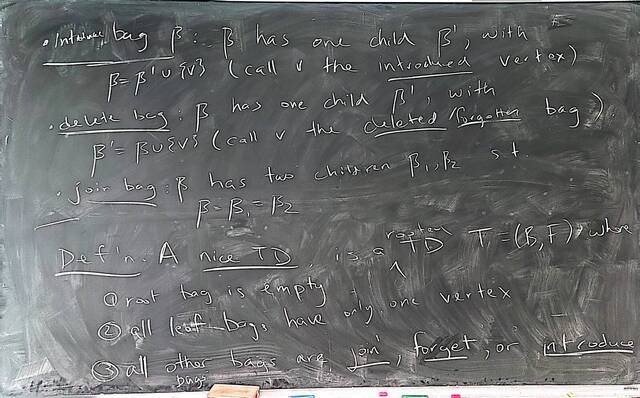 • Introduce bag β: β has one child β', with
β = β' ∪ {v} (call v the introduced vertex)
• delete bag: β has one child β', with
β' = β ∪ {v} (call v the deleted/forgotten bag)
• join bag: β has two children β₁, β₂ s.t.
β = β₁ = β₂
Def'n: A nice TD is a rooted TD T = (B, F), where
① root bag is empty
② all leaf bags have only one vertex
③ all other bags are join, forget, or introduce
bags